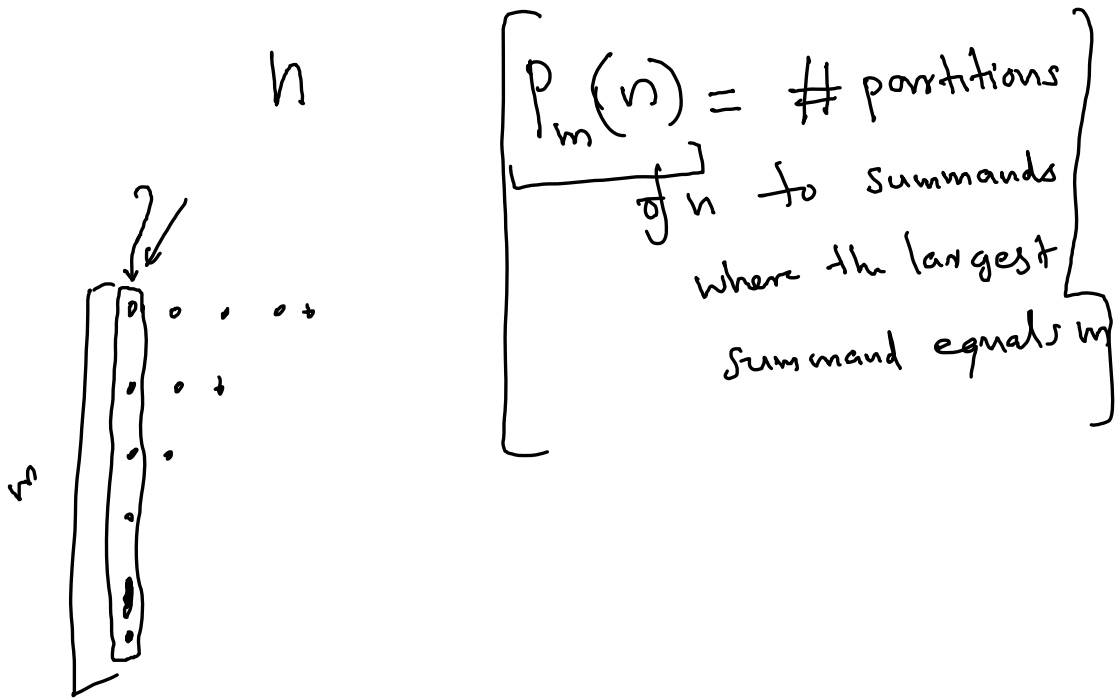 n
P_m(n) = # partitions
of n to summands
where the largest
summand equals m
?
m